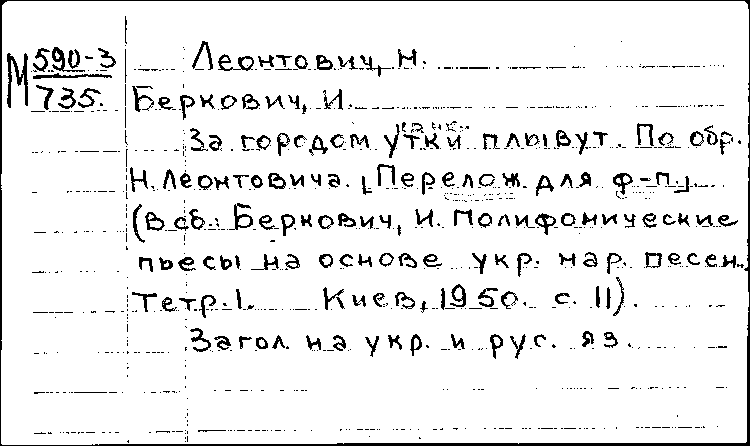 М 590-3
735.
Леонтович, Н.
Беркович, И.
За городом утки плывут. По обр.
Н. Леонтовича. [Перелож. для ф-п.]
(В сб.: Беркович, И. Полифонические
пьесы на основе укр. нар. песен.
Тетр. 1. Киев, 1950. с. 11).
Загол. на укр. и рус. яз.